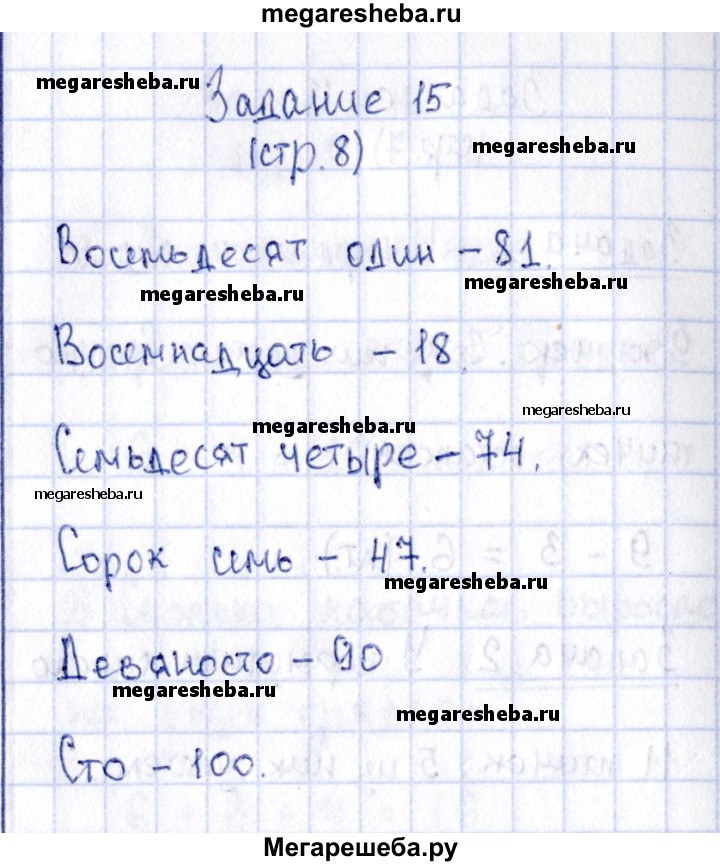 megaresheba.ru
megaresheba.ru
Задание 15
(стр. 8)
megaresheba.ru
Восемьдесят один – 81.
megaresheba.ru
Восемнадцать – 18.
megaresheba.ru
megaresheba.ru
Семьдесят четыре – 74.
megaresheba.ru
Сорок семь – 47.
megaresheba.ru
Девяносто – 90
megaresheba.ru
megaresheba.ru
Сто – 100.
Мегарешеба.ру